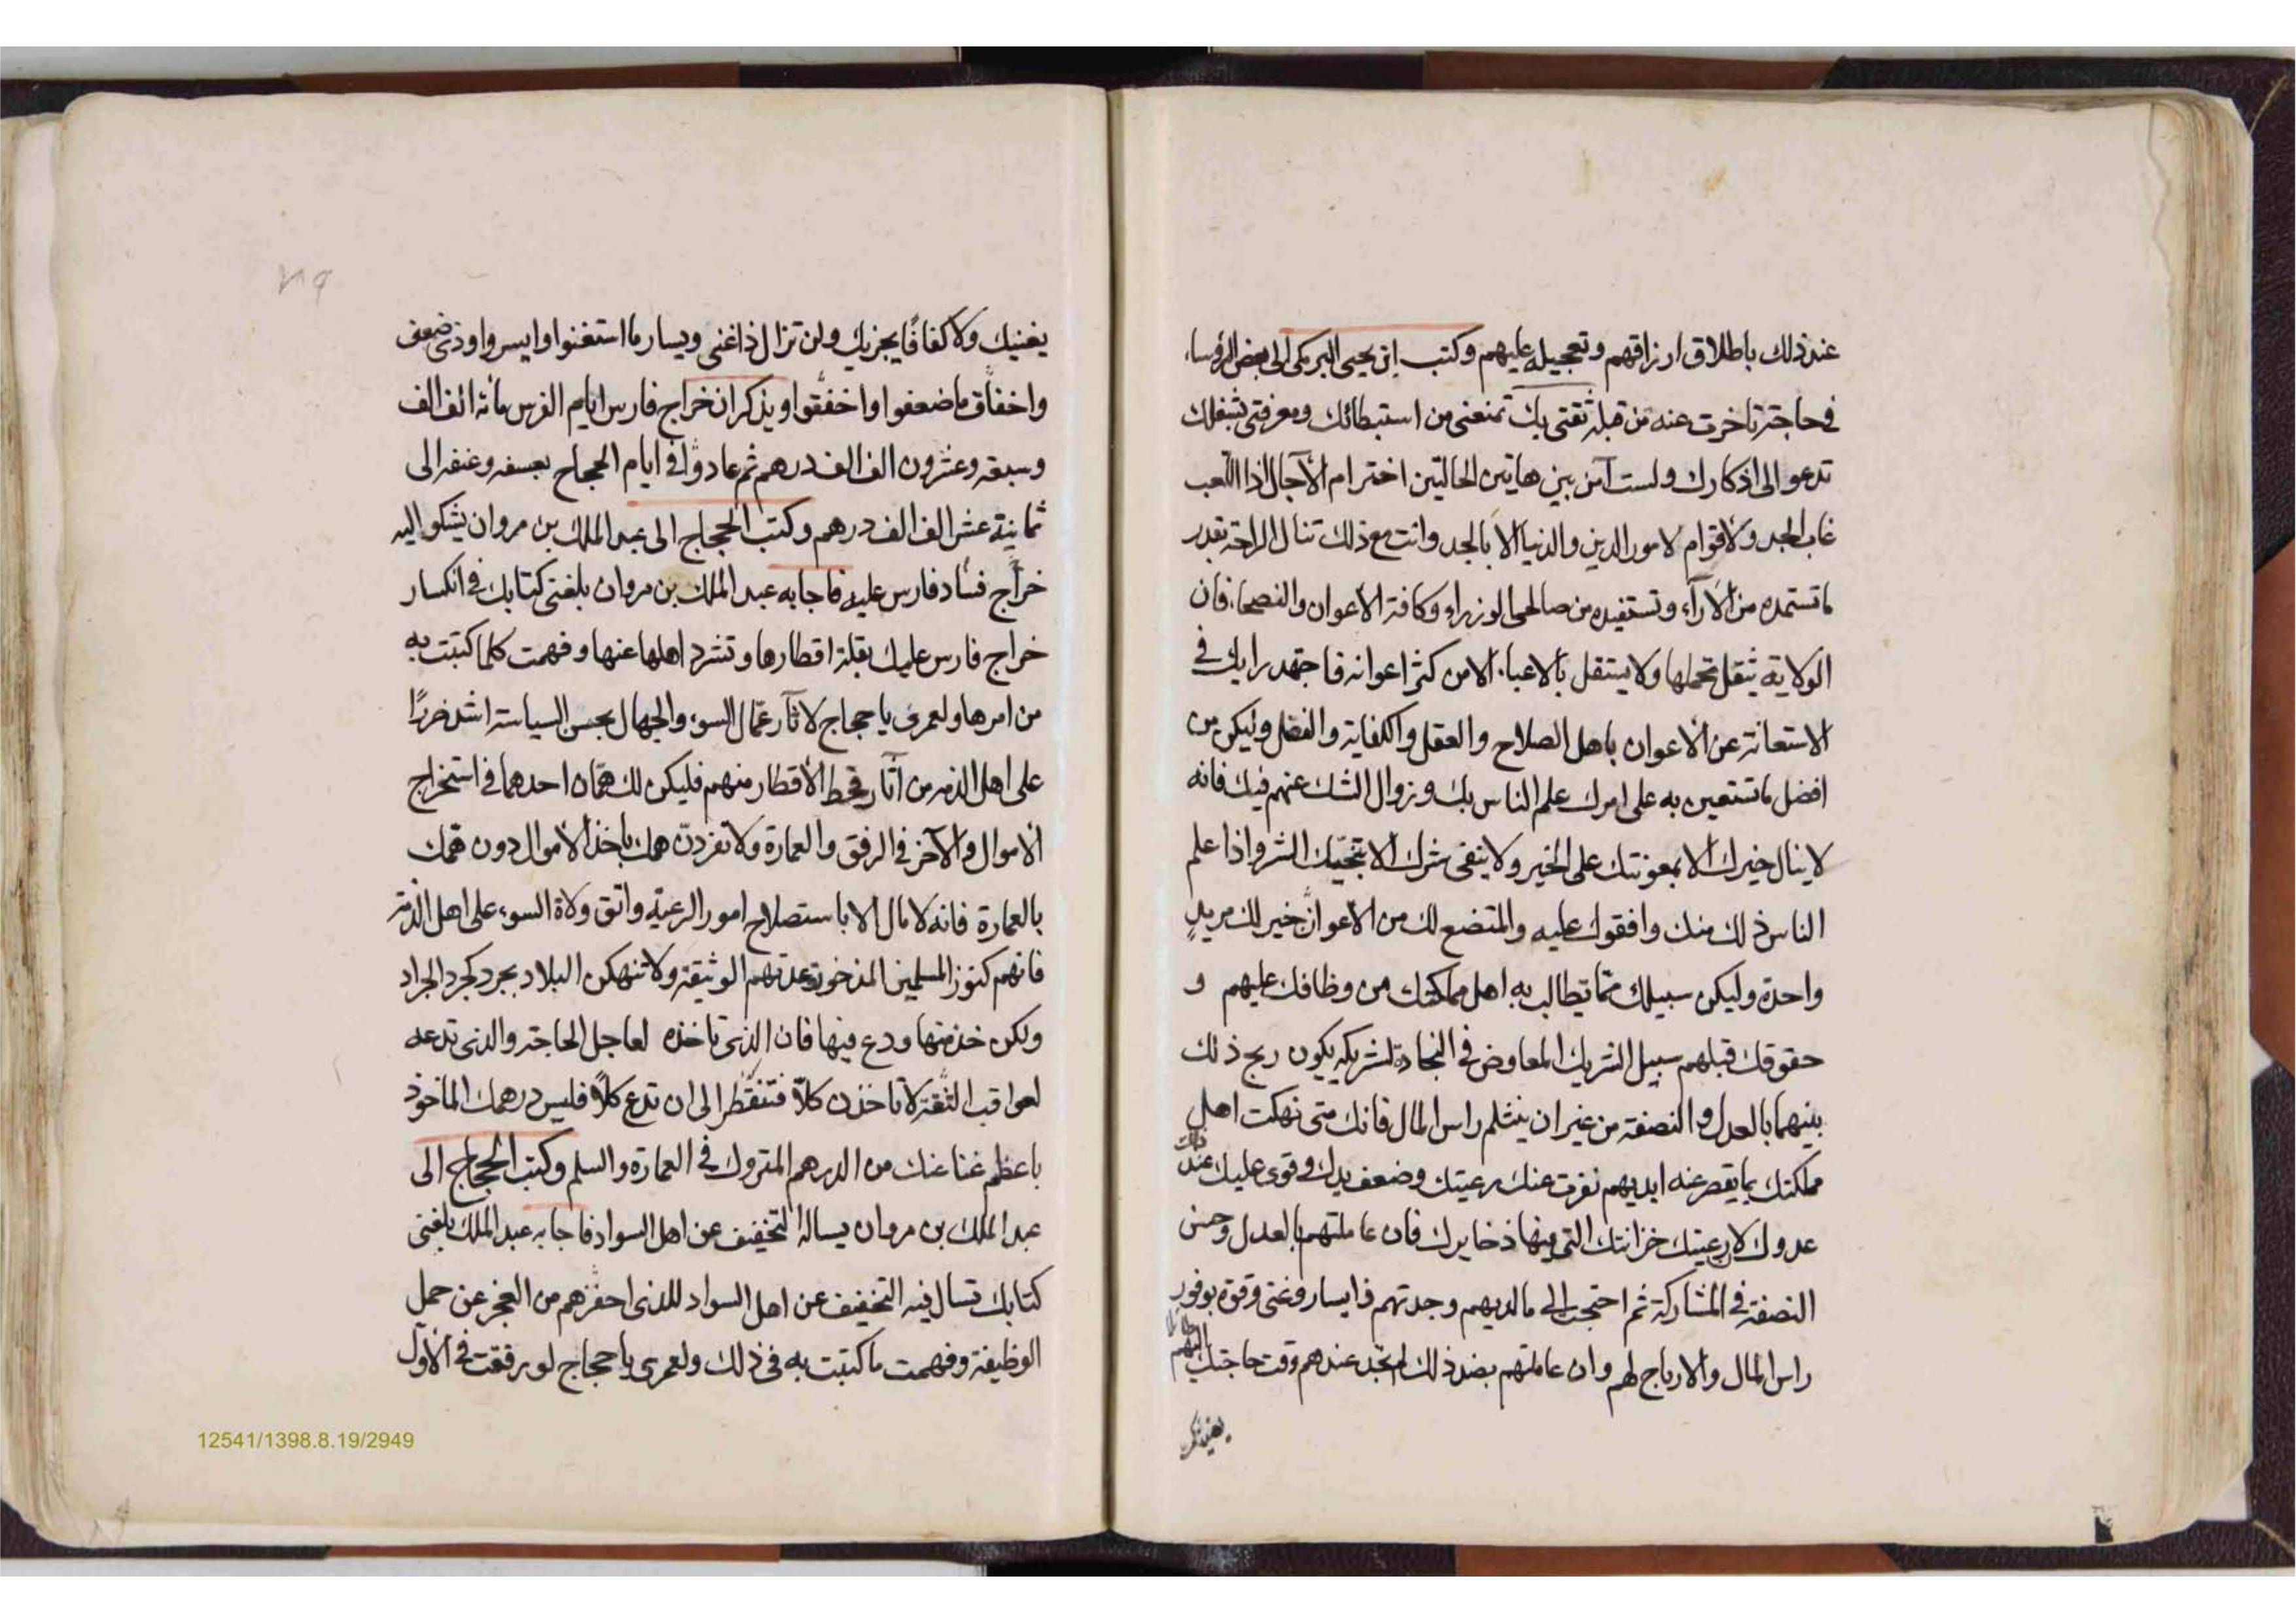 عند ذلك باطلاق ارزاقهم وتعجيله عليهم وكتب ابن يحيى البرمكى الى بعض الرؤساء
فى حاجة تاخرت عنه من قبله ثقتى بك تمنعنى من استبطائك ومعرفتى بشغلك
تدعو الى اذكارك ولست آمن بين هاتين الحالتين اخترام الآجال اذا اللعب
غاب الجد ولا قوام لامور الدين والدنيا الا بالجد وانت مع ذلك تنال الراحة بقدر
ما تستمده من الآراء وتستفيده من صالحى الوزراء وكافة الاعوان والنصحاء فان
الولاية يثقل تحملها ولا يستقل بالاعباء الا من كثر اعوانه فاجتهد رايك فى
الاستعانة عن الاعوان باهل الصلاح والعقل والكفاية والفضل وليكن من
افضل ما تستعين به على امرك علم الناس بك وزوال الشك عنهم فيك فانه
لا ينال خيرك الا بمعونتك على الخير ولا يتقى شرك الا بتجنبك الشر واذا علم
الناس ذلك منك وافقوك عليه والمتضع لك من الاعوان خير لك من يد
واحدة وليكن سبيلك مما تطالب به اهل مملكتك من وظافك عليهم و
حقوقك قبلهم سبيل الشريك المعاوض فى التجارة لشريكه يكون ربح ذلك
بينهما بالعدل والنصفة من غير ان ينثلم راس المال فانك متى نهكت اهل
مملكتك بما يقصر عنه ايديهم نفرت عنك رعيتك وضعف يدك وقوى عليك عند ذلك
عدوك لا رعيتك خزانتك التى فيها ذخايرك فان عاملتهم بالعدل وحسن
النصفة فى المشاركة ثم احتجت الى ما لديهم وجدتهم ذا يسار وغنى وقوة بوفور
راس المال والارباح لهم وان عاملتهم بضد ذلك لم تجد عندهم وقت حاجتك اليهم
يغنيك ولا كفافًا يجزيك ولن تزال ذا غنى ويسار ما استغنوا وايسروا وذى ضعف
واخفاق ما ضعفوا واخفقوا ويذكر ان خراج فارس ايام الفرس مائة الف الف
وسبعة وعشرون الف الف درهم ثم عاد وافى ايام الحجاج بعسفه وعنفه الى
ثمانية عشر الف الف درهم وكتب الحجاج الى عبد الملك بن مروان يشكو اليه
خراج فساد فارس عليه فاجابه عبد الملك بن مروان بلغنى كتابك فى انكسار
خراج فارس عليك بقلة اقطارها وتشرد اهلها عنها وفهمت كلما كتبت به
من امرها ولعمرى يا حجاج لآثار عمّال السوء والجهال بحسن السياسة اشد ضررًا
على اهل الذمه من آثار قحط الاقطار منهم فليكن لك همّان احدهما فى استخراج
الاموال والآخر فى الرفق والعمارة ولا تفردنّ همك باخذ الاموال دون همك
بالعمارة فانه لا مال الا باستصلاح امور الرعية واتق ولاة السوء على اهل الذمة
فانهم كنوز المسلمين المذخورة وعدتهم الوثيقة ولا تنهكن البلاد بجرد كجرد الجراد
ولكن خذ منها ودع فيها فان الذى تاخذه لعاجل الحاجة والذى تدعه
لعواقب الثقة لا تاخذن كلاًّ فتنقطر الى ان تدع كلاًّ فليس درهمك الماخوذ
باعظم غنا عنك من الدرهم المتروك فى العمارة والسلم وكتب الحجاج الى
عبد الملك بن مروان يساله التخفيف عن اهل السواد فاجابه عبد الملك بلغنى
كتابك تسال فيه التخفيف عن اهل السواد للذى احفزهم من العجز عن حمل
الوظيفة وفهمت ما كتبت به فى ذلك ولعمرى يا حجاج لو رفقت فى الاول
12541/1398.8.19/2949